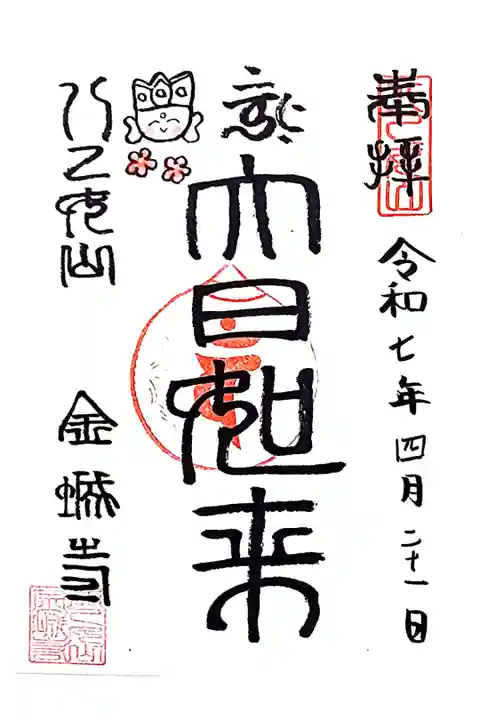 奉拝
令和七年四月二十一日
大日如来
八乙女山
金城寺